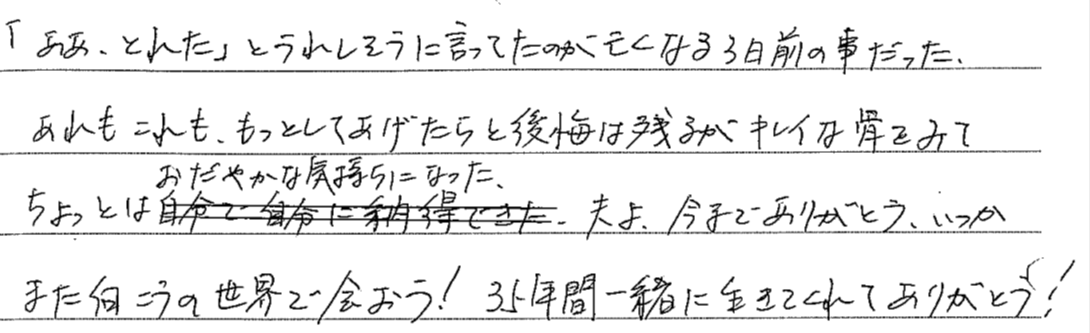 「ああ、とれた」とうれしそうに言ってたのが亡くなる3日前の事だった、
あれもこれも、もっとしてあげたらと後悔は残るがキレイな骨をみて
おだやかな気持ちになった、
ちょっとは自分で自分に納得できた、夫よ、今までありがとう、いつか
また向こうの世界で会おう! 35年間一緒に生きてくれてありがとう!